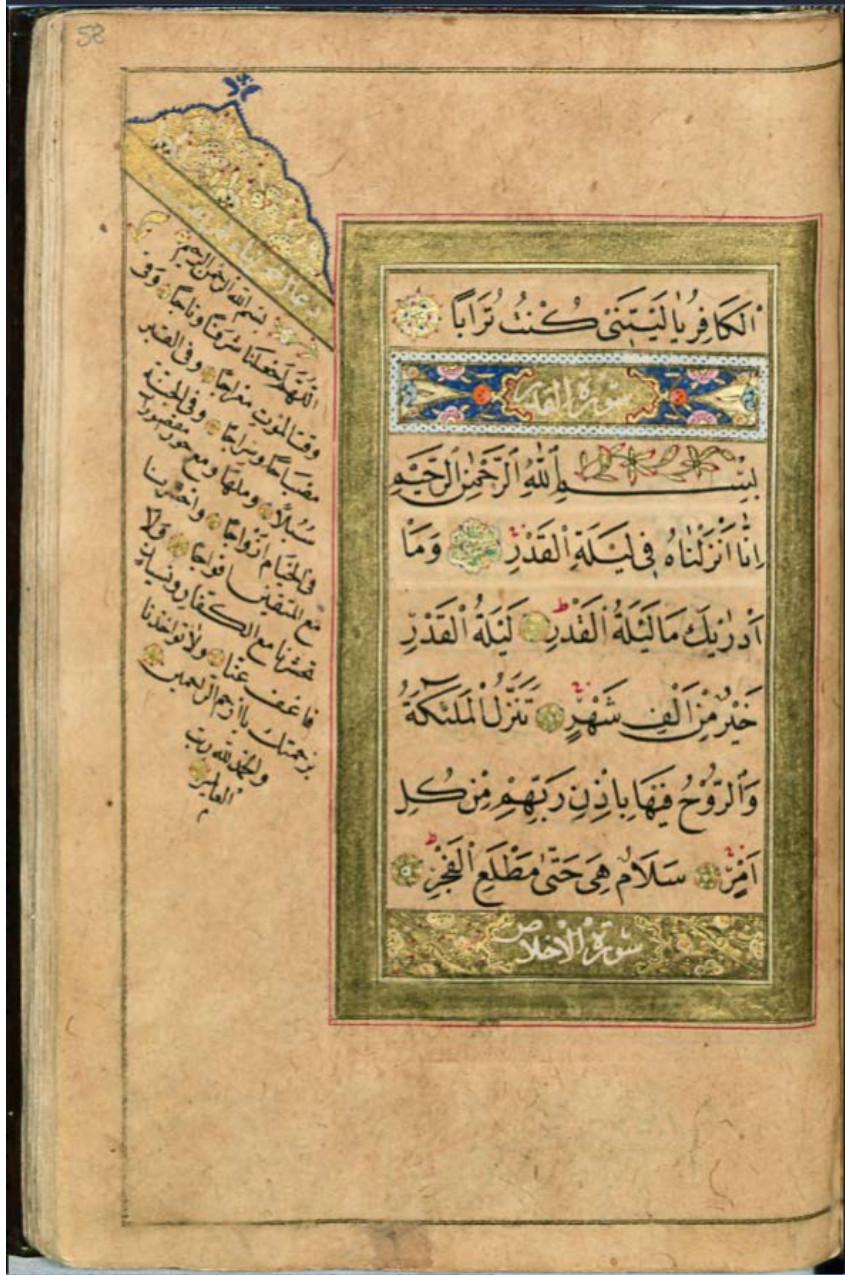 58
الْكَافِرُ يَا لَيْتَنِي كُنْتُ تُرَابًا
سورة القدر
بِسْمِ اللّٰهِ الرَّحْمٰنِ الرَّحِيمِ
اِنَّا اَنْزَلْنَاهُ فِي لَيْلَةِ الْقَدْرِ وَمَا
اَدْرٰيكَ مَا لَيْلَةُ الْقَدْرِ لَيْلَةُ الْقَدْرِ
خَيْرٌ مِنْ اَلْفِ شَهْرٍ تَنَزَّلُ الْمَلٰئِكَةُ
وَالرُّوحُ فِيهَا بِاِذْنِ رَبِّهِمْ مِنْ كُلِّ
اَمْرٍ سَلَامٌ هِيَ حَتّٰى مَطْلَعِ الْفَجْرِ
سورة الاخلاص
بسم الله الرحمن الرحيم
اللهم اجعلنا شرفا وتاجا وفى
وقت الموت معراجا وفى القبر
مصباحا وسراجا وفى الجنة
سبلا ومع حور مقصورات
فى الخيام ازواجا واحشرنا
مع المتقين افواجا ولا
تحشرنا مع الكفار
فاعف عنا ولا تؤاخذنا
برحمتك يا ارحم الراحمين
والحمد لله رب
العالمين
م